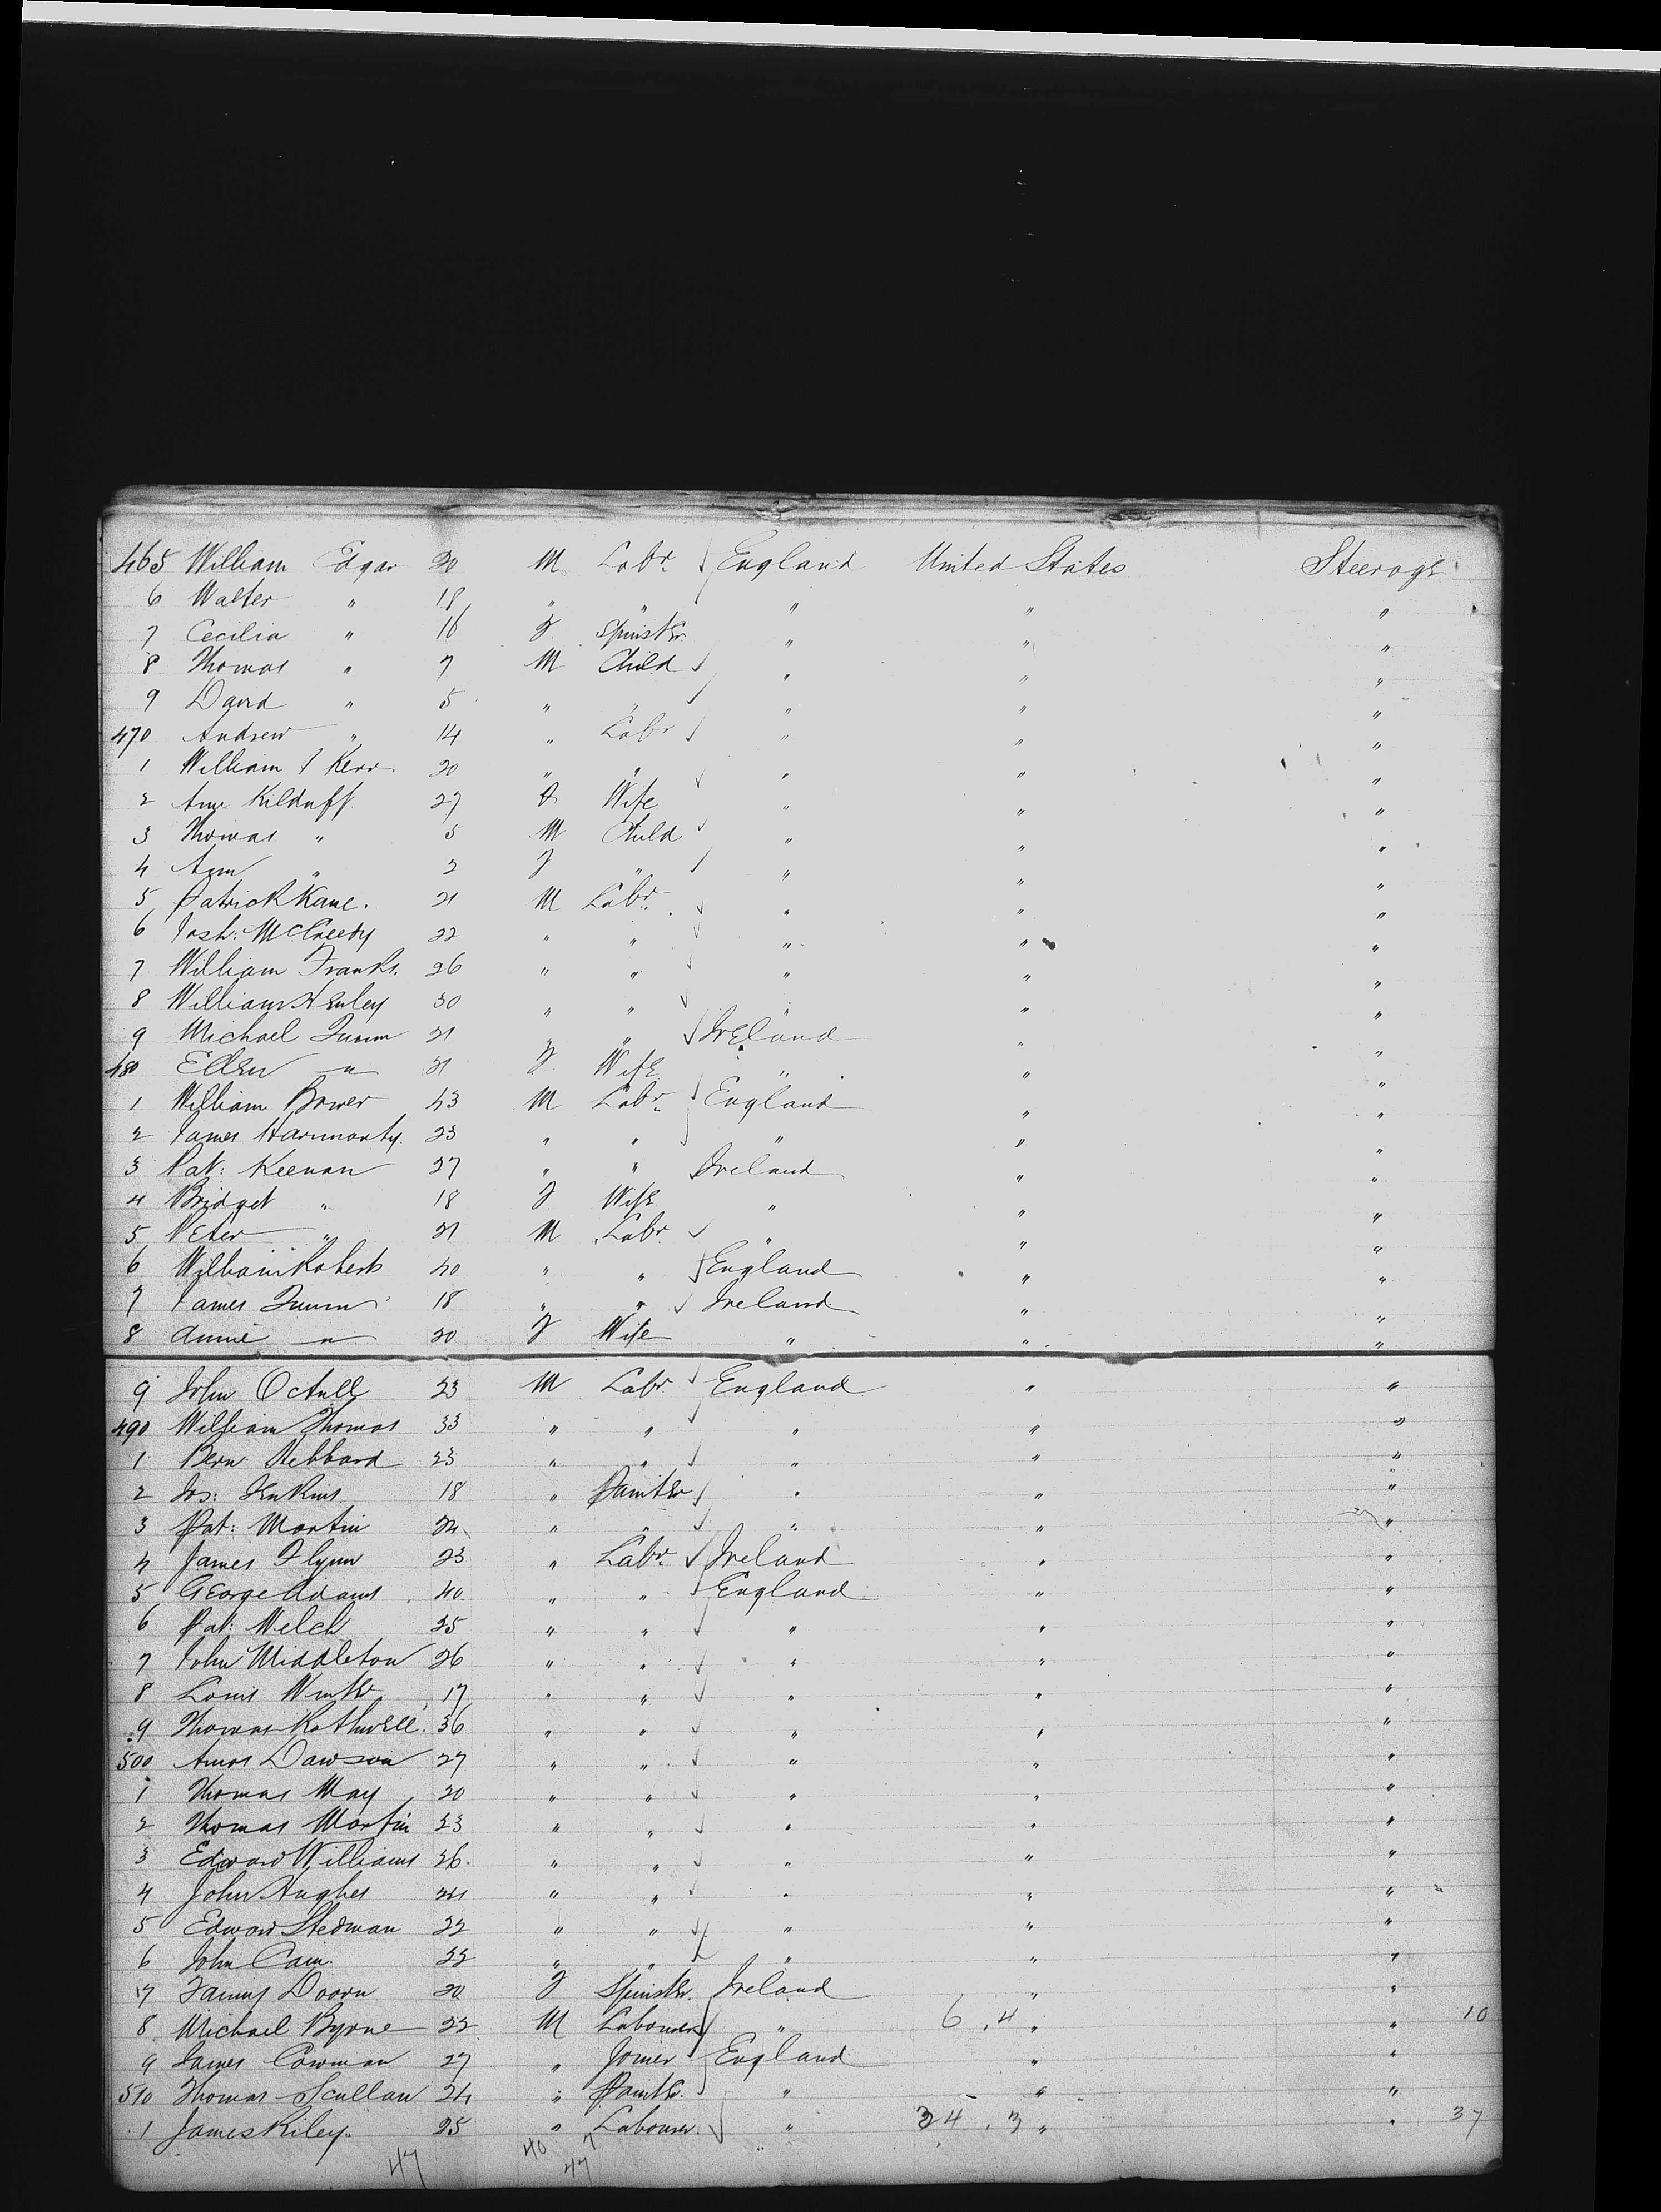 465 William Edgar 20 M Labr. England United States Steerage
6 Walter " 18 " " " " "
7 Cecilia " 16 F Spinster " " "
8 Thomas " 7 M Child " " "
9 David " 5 " " " " "
470 Andrew " 14 " Labr " " "
1 William J Kerr 20 " " " " "
2 Ann Kilduff 27 F Wife " " "
3 Thomas " 5 M Child " " "
4 Ann " 2 F " " " "
5 Patrick Kane. 21 M Labr. " " "
6 Josh: McCreedy 22 " " " " "
7 William Franks. 26 " " " " "
8 William Henley 30 " " " " "
9 Michael Quinn 21 " " Ireland " "
480 Ellen " 21 F Wife " " "
1 William Bower 43 M Labr. England " "
2 James 23 " " " " "
3 Pat: Keenan 27 " " Ireland " "
4 Bridget " 18 F Wife " " "
5 Peter " 21 M Labr. " " "
6 William Roberts 40 " " England " "
7 James Quinn 18 " " Ireland " "
8 Annie " 20 F Wife " " "
9 John 23 M Labr. England " "
490 William Thomas 33 " " " " "
1 Bern. Hebbard 23 " " " " "
2 Jos: Jenkins 18 " Painter " " "
3 Pat: Martin 24 " " " " "
4 James Flynn 23 " Labr. Ireland " "
5 George Adams 40 " " England " "
6 Pat: Welch 25 " " " " "
7 John Middleton 26 " " " " "
8 Louis Winter 17 " " " " "
9 Thomas Rothwell. 36 " " " " "
500 Amos Dawson 27 " " " " "
1 Thomas May 20 " " " " "
2 Thomas Martin 23 " " " " "
3 Edward Williams 26. " " " " "
4 John Hughes 21 " " " " "
5 Edward Stedman 22 " " " " "
6 John Cain. 22 " " " " "
7 Fanny Doorn 20 F Spinster. Ireland " "
8 Michael Byrne 22 M Labourer " 6 . 4 " " 10
9 James Cowman 27 " Joiner England " "
510 Thomas Scullan 24 " Painter. " " "
1 James Riley. 25 " Labourer. " 34 . 3 " " 37
47 40 7
47